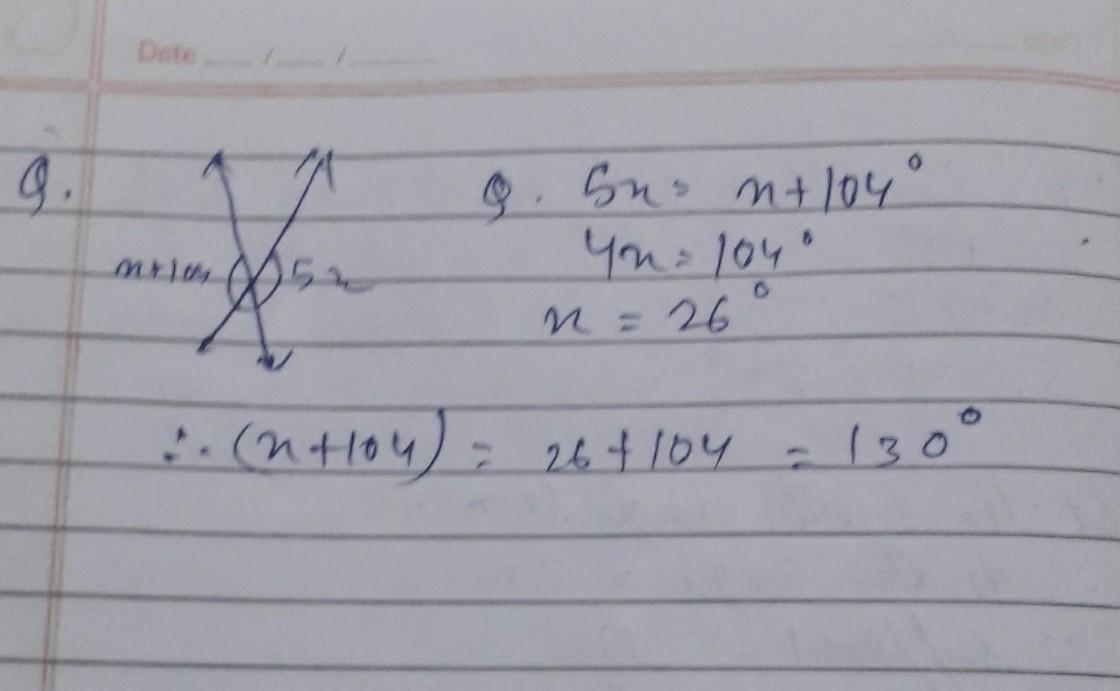 Date ___/___/___
Q.
x+104
5x
Q. 5x = x+104°
4x = 104°
x = 26°
∴ (x+104) = 26+104 = 130°